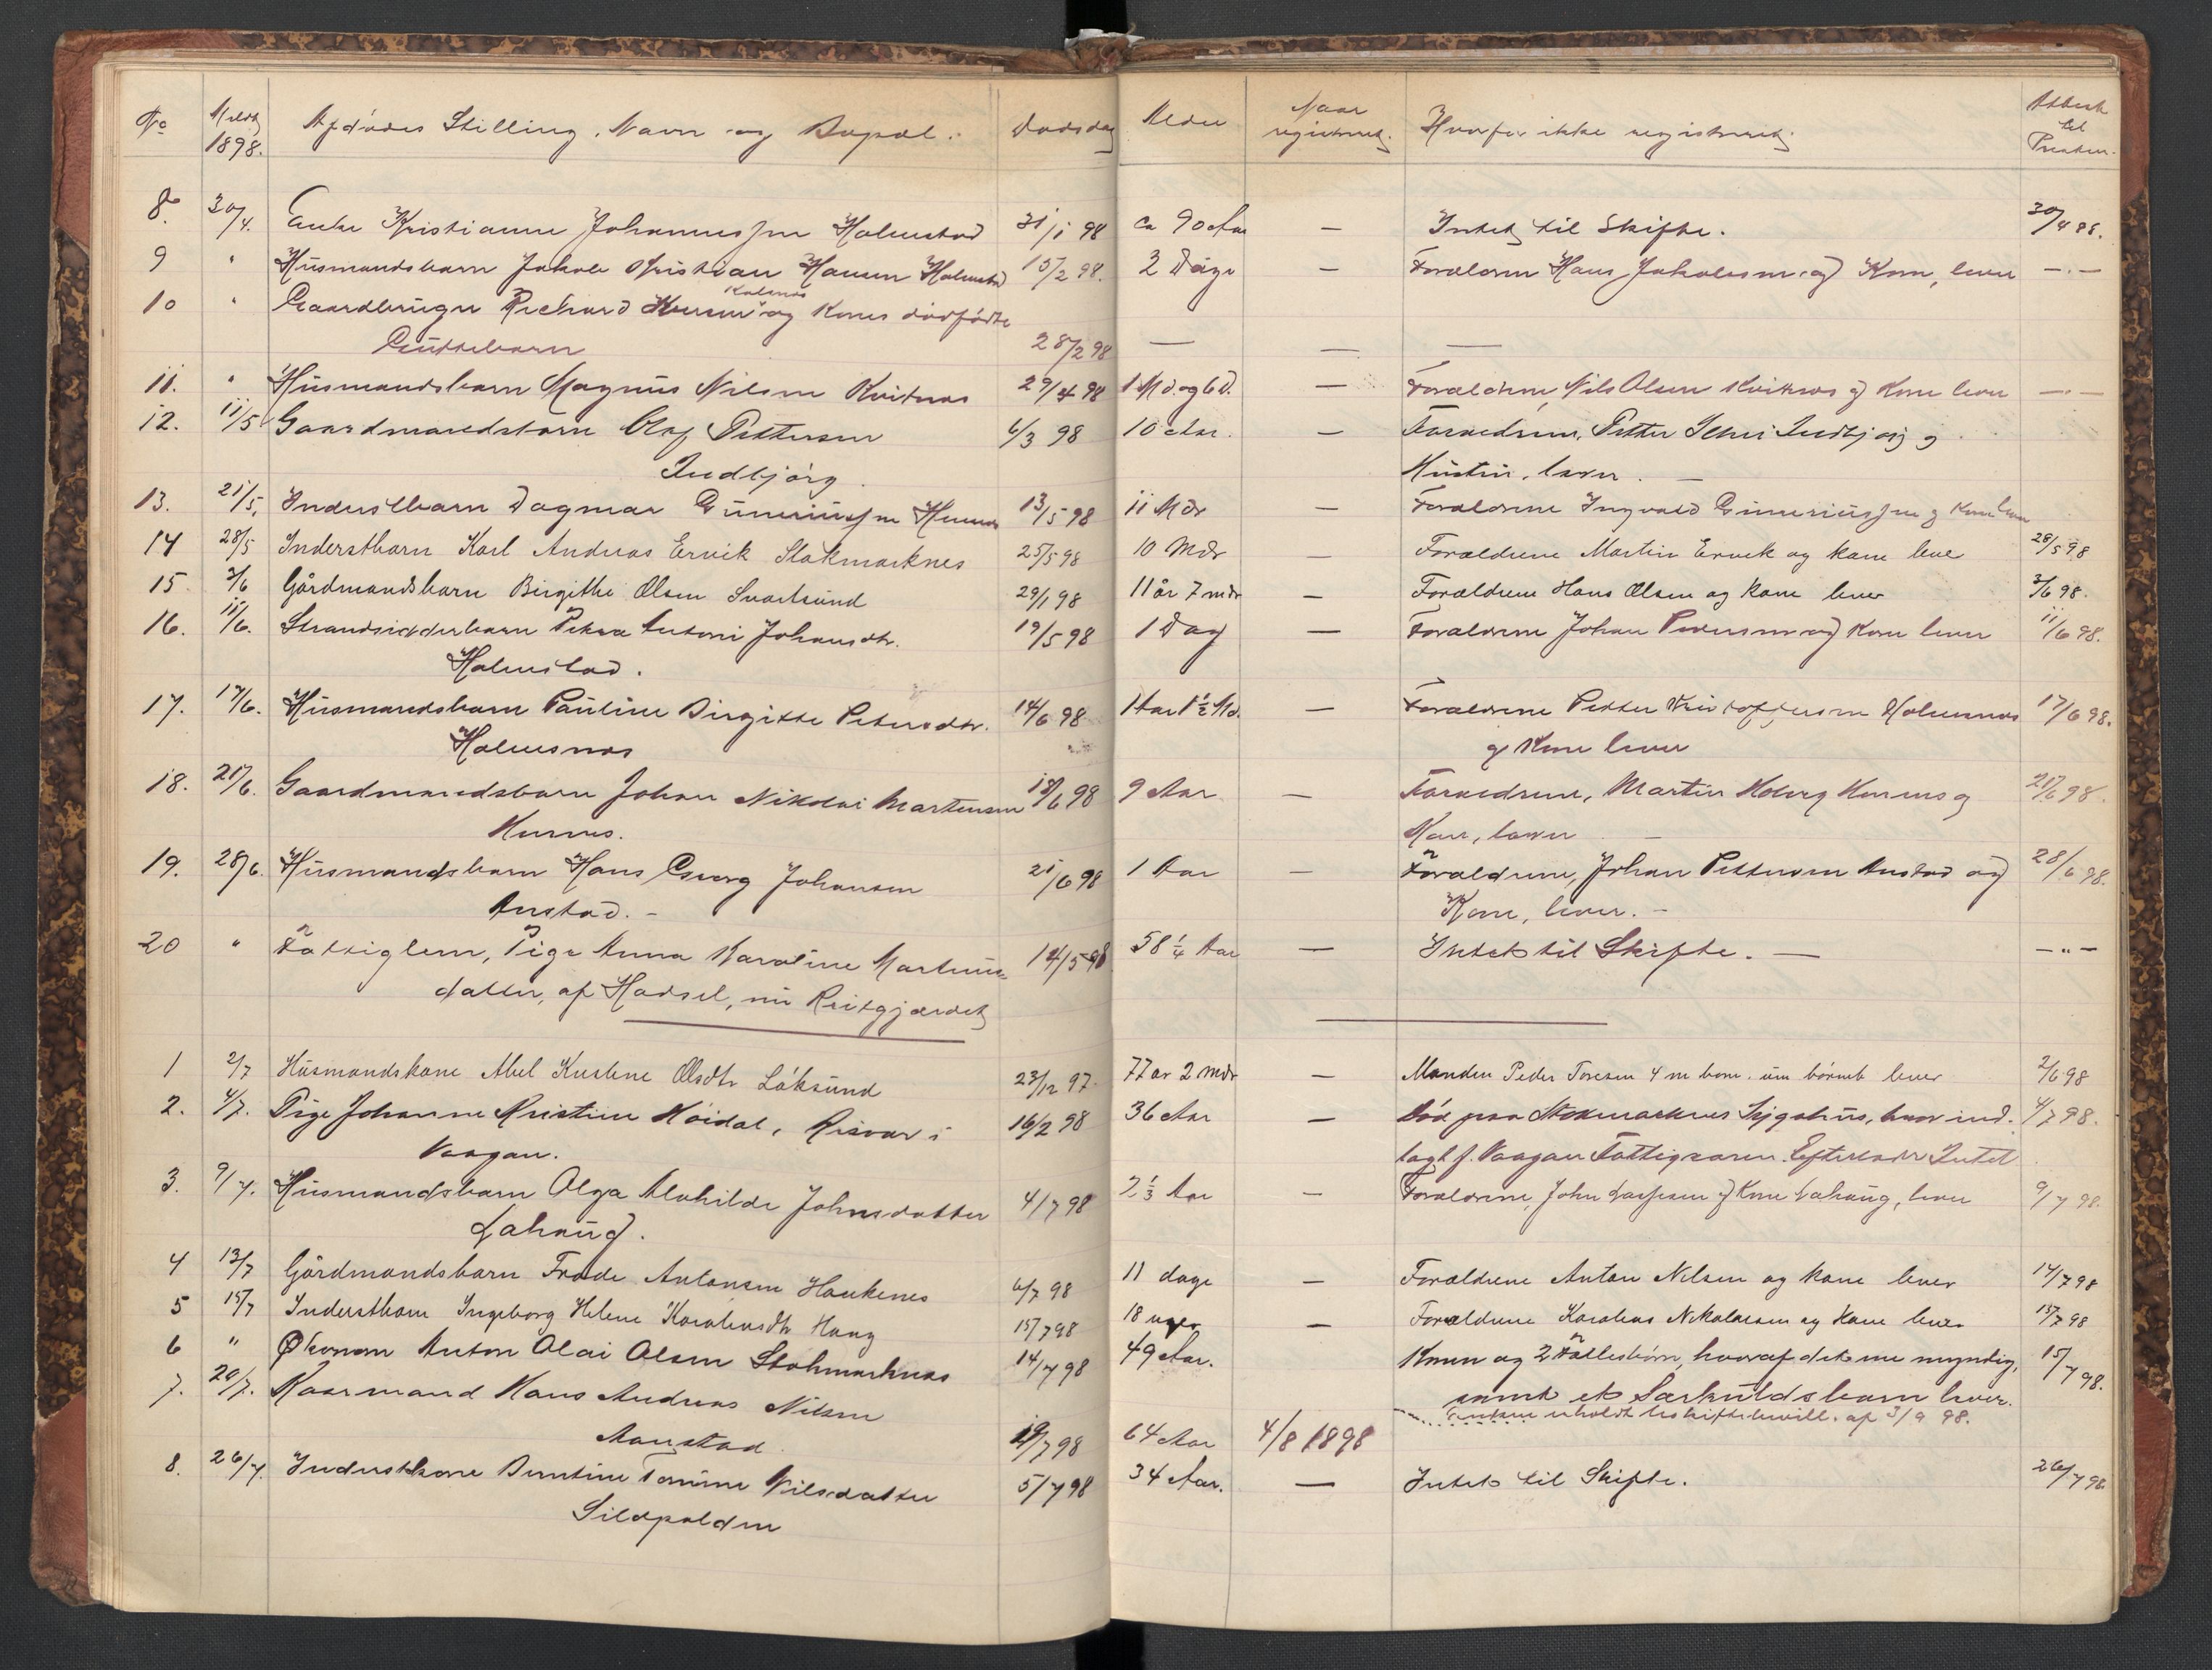 No Meldt 1898. Afdødes Stilling, Navn og Bopæl. Dødsdag Alder Naar registreret Hvorfor ikke registreret Attest til Præsten.
8. 30/4. Enke Kristianna Johannesen Holmstad 31/1 98 ca 90 Aar — Intet til Skifte. 30/4 98.
9 " Husmandsbarn Jakob Kristian Hansen Holmstad 15/2 98. 2 Dage — Forældrene Hans Jakobsen og Kone, lever —"—
10 " Gaardbruger Richard Kurnes og Kones dødfødte
Guttebarn 28/2 98 — — —
11. " Husmandsbarn Magnus Nilsen Kvitnes 29/4 98 1 Md. og 6 D. — Forældrene, Nils Olsen Kvitnes og Kone lever —"—
12. 11/5 Gaardmandsbarn Olaf Pettersen 6/3 98 10 Aar. — Forældrene, Petter Indbjørg og
Indbjørg. Hustru, lever. —
13. 21/5. Inderstbarn Dagmar Guneriussen 13/5 98 11 Mdr — Forældrene Ingvald Guneriussen og Kone lever
14 28/5 Inderstbarn Karl Andreas Ervik Stokmarknes 25/5 98 10 Mdr — Forældrene Martin Ervik og kone lever 28/5 98
15 3/6 Gårdmandsbarn Birgithe Olsen Svartsund 29/1 98 11 år 7 mdr — Forældrene Hans Olsen og kone lever 3/6 98.
16. 11/6. Strandsidderbarn Petra Antoni Johansdtr. 19/5 98 1 Dag — Forældrene Johan Pedersen og Kone lever 11/6 98.
Holmstad.
17. 17/6. Husmandsbarn Pauline Birgitte Petersdtr. 14/6 98 1 Aar 1½ Md. — Forældrene Petter Kristoffersen Holmsnes 17/6 98.
Holmsnes og Kone lever
18. 21/6. Gaardmandsbarn Johan Nikolai Martinsen 18/6 98 9 Aar — Forældrene, Martin Kurnes og 21/6 98.
Kurnes. Kone, lever —
19. 28/6. Husmandsbarn Hans Georg Johansen 21/6 98 1 Aar — Forældrene, Johan Pettersen Anstad og 28/6 98.
Anstad. — Kone, lever. —
20 " Fattiglem, Pige Anna Karoline Martinus- 14/5 98 58 ¼ Aar — Intet til Skifte. — —"—
datter, af Hadsel, nu Reitgjærdet
1 2/7 Husmandskone Abel Kristine Olsdtr Løksund 23/12 97. 77 år 2 mdr — Manden Peder Toresen 4 m barn lever 2/6 98
2. 4/7. Pige Johanne Kristine Høidal, Risvær i 16/2 98 36 Aar — Død paa Stokmarknes Sygehus, hvor ind- 4/7 98.
Vaagan. lagt f. Vaagan Fattigvæsen. Efterlader Intet
3. 9/7. Husmandsbarn Olga Alvhilde Johnsdatter 4/7 98 2 ⅓ Aar — Forældrene, John Lassesen og Kone Lahaug, lever 9/7 98.
Lahaug.
4 13/7 Gårdmandsbarn Frode Antonsen Haukenes 6/7 98 11 dage — Forældrene Anton Nilsen og kone lever 14/7 98
5 15/7 Inderstbarn Ingeborg Helene Karoliusdtr Haug 15/7 98 18 uger — Forældrene Karolius Nikolaisen og kone lever 15/7 98
6 " Økonom Anton Olai Olsen Stokmarknes 14/7 98 49 Aar. Konen og 2 Fællesbørn, hvoraf det ene myndig, 15/7 98.
7. 20/7. Kaarmand Hans Andreas Nilsen samt et Særkuldsbarn lever.
Enken erholdt uskiftebevill. af 3/9 98.
Aanstad 19/7 98 64 Aar 4/8 1898
8. 26/7. Inderstkone Berntine Tomine Nilsdatter 5/7 98 34 Aar. — Intet til Skifte. 26/7 98.
Sildpolden